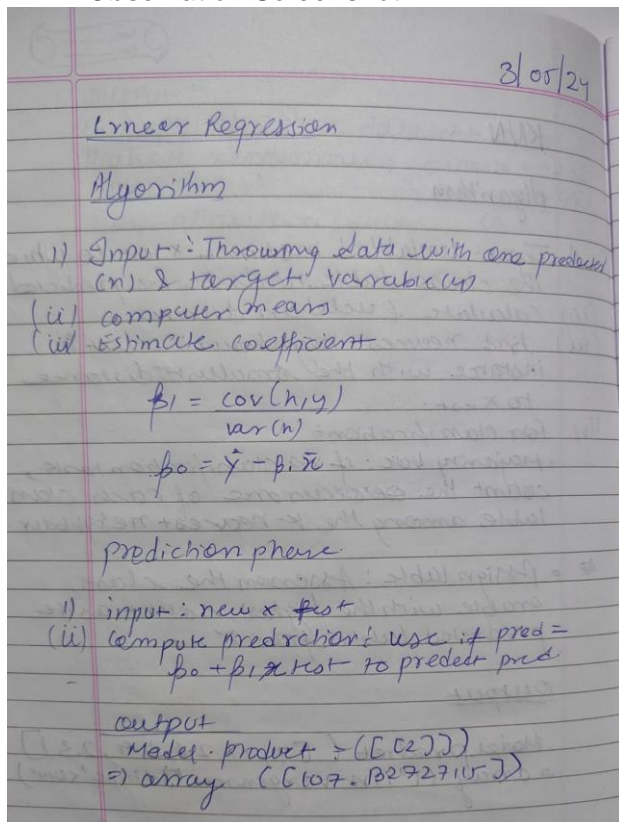 3/05/24
Linear Regression
Algorithm
1) Input : Throusing data with one predected
(n) & target variable (y)
(ii) computer means
(iii) Estimate coefficient
β1 = cov(n,y)
var(n)
β0 = ȳ - β1 x̄
prediction phase.
1) input : new x test
(ii) compute prediction : use if pred =
β0 + β1 x test to predect pred
output
Model. product = ([[2]])
=> array ([[107.